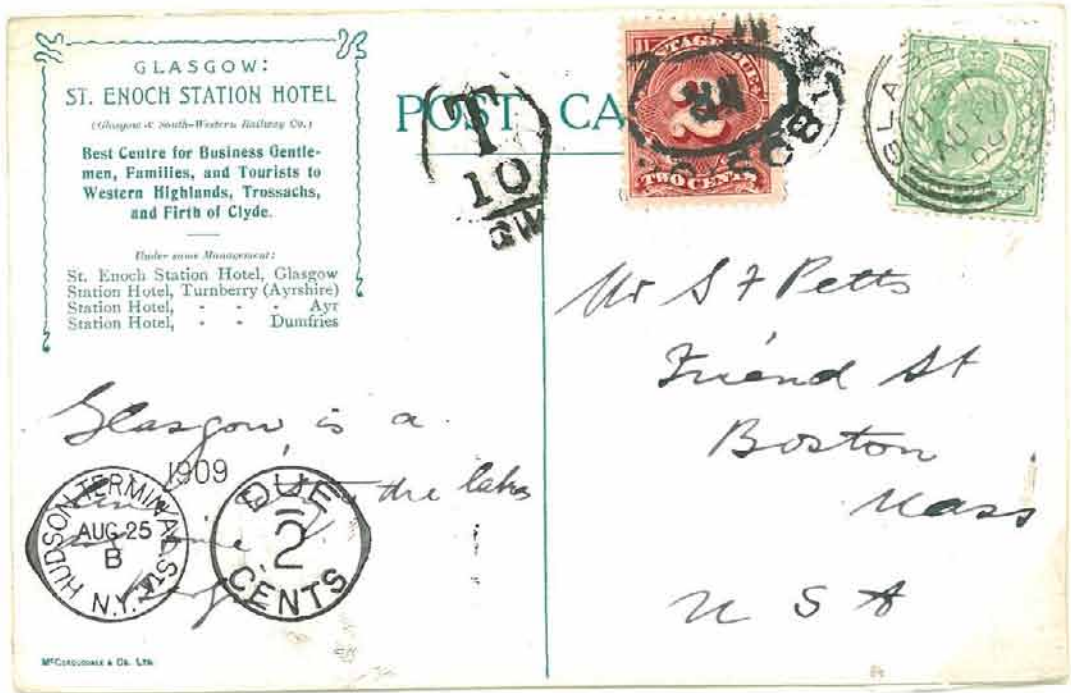 GLASGOW:
ST. ENOCH STATION HOTEL
(Glasgow & South-Western Railway Co.)
Best Centre for Business Gentle-
men, Families, and Tourists to
Western Highlands, Trossachs,
and Firth of Clyde.
Under same Management:
St. Enoch Station Hotel, Glasgow
Station Hotel, Turnberry (Ayrshire)
Station Hotel, - - - Ayr
Station Hotel, - - Dumfries
POST CA
T
10
GW
POSTAGE DUE
2
TWO CENTS
BOST
GLASGOW
AU
09
Mr S F Petts
Friend St
Boston
Mass
U S A
Glasgow is a
the lakes
1909
HUDSON TERMINAL STA.
AUG 25
B
N.Y.
DUE
2
CENTS
McCorquodale & Co. Ltd.